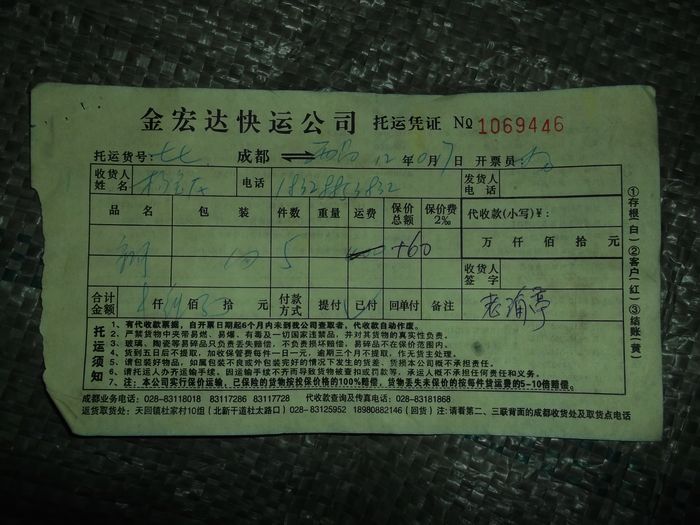 金宏达快运公司 托运凭证 № 1069446
托运货号: 成都 ⇌ 12年 月7日 开票员
收货人姓名 电话 发货人电话
品名 包装 件数 重量 运费 保价总额 保价费2‰ 代收款(小写)¥:
5 +60 万 仟 佰 拾 元
收货人签字
合计金额 仟 佰 拾 元 付款方式 提付 已付 回单付 备注
托运须知
1、有代收款票据,自开票日期起6个月内未到我公司查取者,代收款自动作废。
2、严禁货物中夹带易燃、易爆、有毒及一切国家违禁品,并对货物的真实性负责。
3、玻璃、陶瓷等易碎品只负责丢失赔偿,不负责损坏赔偿。易碎品不在保价范围内。
4、货到五日后不提取,加收保管费每件一日一元,逾期三个月不提取,作无货主处理。
5、请包装好物品,如属包装不良或外包装完好的情况下发生的货差、货损本公司概不承担责任。
6、请托运人办齐运输手续。因运输手续不齐而导致货物被查扣或罚款等,承运人概不承担任何责任和义务。
7、注:本公司实行保价运输、已保险的货物按投保价格的100%赔偿,货物丢失未保价的按每件货运费的5-10倍赔偿。
成都业务电话:028-83118018 83117286 83117728 代收款查询及传真电话:028-83181868
返货取货处:天回镇杜家村10组(北新干道杜太路口)028-83125952 18980882146(回货) 注:请看第二、三联背面的成都收货处及取货点电话
①存根(白)②客户(红)③结账(黄)